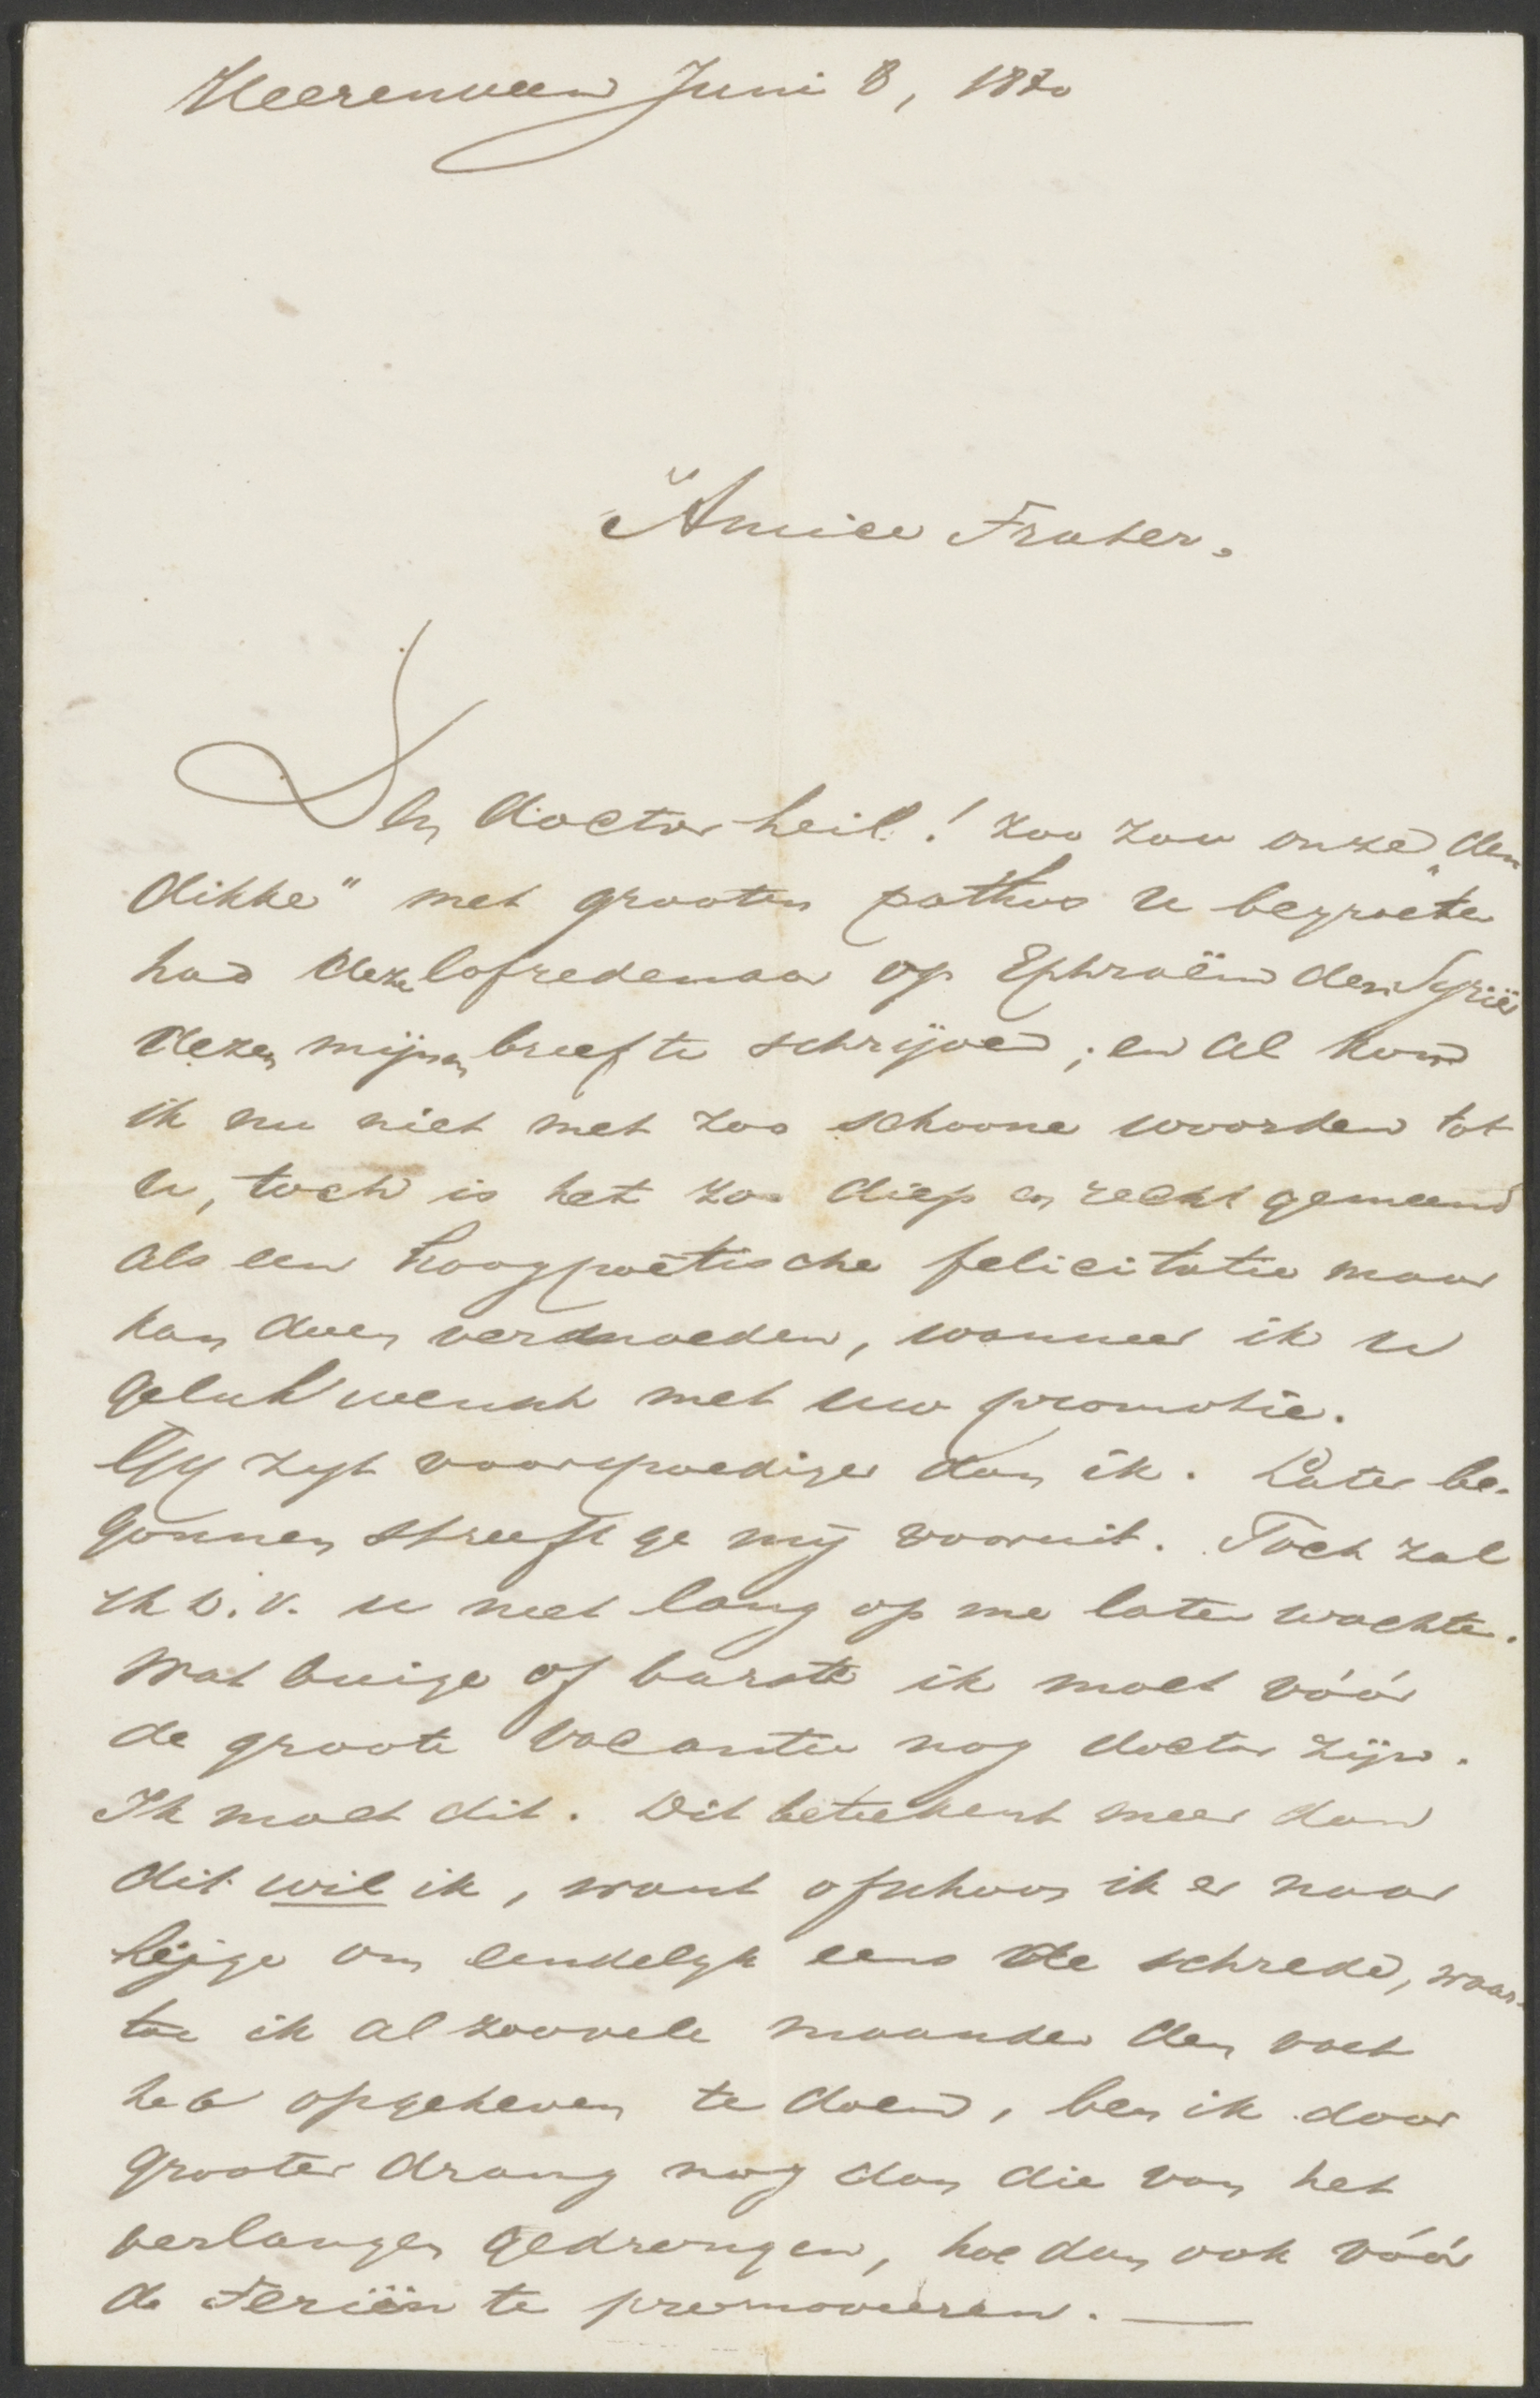 Heerenveen Juni 8, 1880
Amice Frater.
Den doctor heil! Zoo zou onze „den
dikke" met grooten pathos u begroeten
had deze lofredenaar op Ephraïm den Syriër
dezen mijnen brief te schrijven; en al kom
ik nu niet met zoo schoone woorden tot
u, toch is het zoo diep en recht gemeend
als een hoogpoëtische felicitatie maar
kan doen vermoeden, wanneer ik u
geluk wensch met uw promotie.
Gij zijt voorspoediger dan ik. Later be-
gonnen streeft ge mij vooruit. Toch zal
ik D.V. u niet lang op me laten wachten.
Wat buige of barste ik moet vóór
de groote vacantie nog doctor zijn.
Ik moet dit. Dit beteekent meer dan
dit wil ik, want ofschoon ik er naar
hijge om eindelijk eens de schrede, waar-
toe ik al zoovele maanden den voet
heb opgeheven te doen, ben ik door
grooter drang nog dan die van het
verlangen gedrongen, hoe dan ook vóór
de Feriën te promoveeren. —